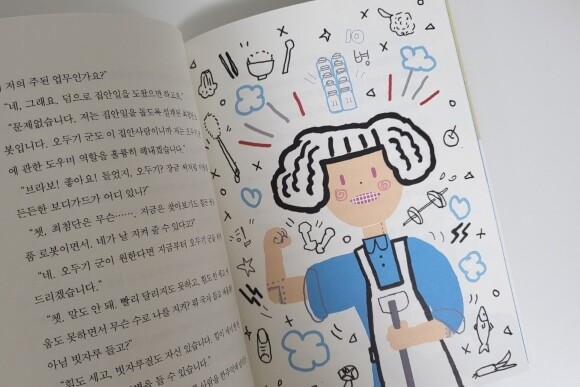 저의 주된 업무인가요?"
"네, 그래요. 덤으로 집안일을 도왔으면 하고요."
"문제없습니다. 저는 집안일을 돕도록 설계된
봇입니다. 오두기 군도 이 집안사람이니까 저는
에 관한 도우미 역할을 훌륭히 해내겠습니다."
"브라보! 좋아요! 들었지, 오두기?
든든한 보디가드가 어디 있니?"
"쳇, 최첨단은 무슨……. 지금은 찾아보기도 힘든
품 로봇이면서. 네가 날 지켜 줄 수 있다고?"
"네. 오두기 군이 원한다면 지금부터 오두기 군을
드리겠습니다."
"쳇, 말도 안 돼. 빨리 달리지도 못하고, 힘도 안 세고
음도 못하면서 무슨 수로 나를 지켜?
아님 빗자루 들고?"
"힘도 세고, 빗자루질도 자신 있습니다.
들 수 있습니다."
10
병